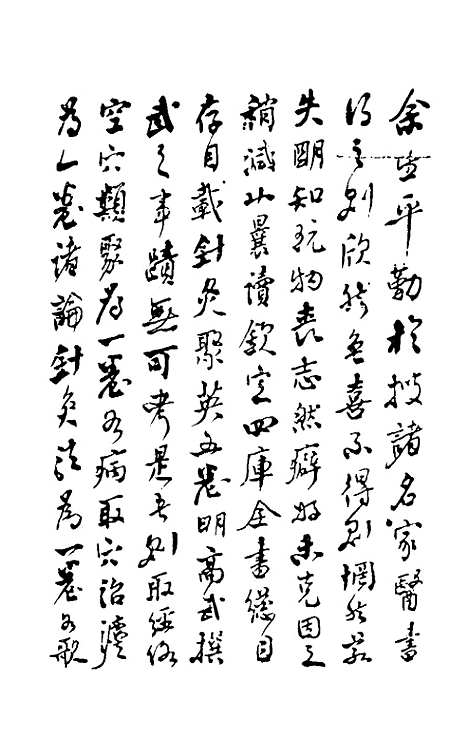 余生平勤於搜諸名家醫書
得之則欣然色喜不得則惘然若
失明知玩物喪志然癖好未克因之
稍減小曩讀欽定四庫全書總目
存目載針灸聚英五卷明高武撰
武之事蹟無可考是書則取經絡
空穴類聚爲一卷各病取穴治瀆
爲一卷諸論針灸法爲一卷各歌